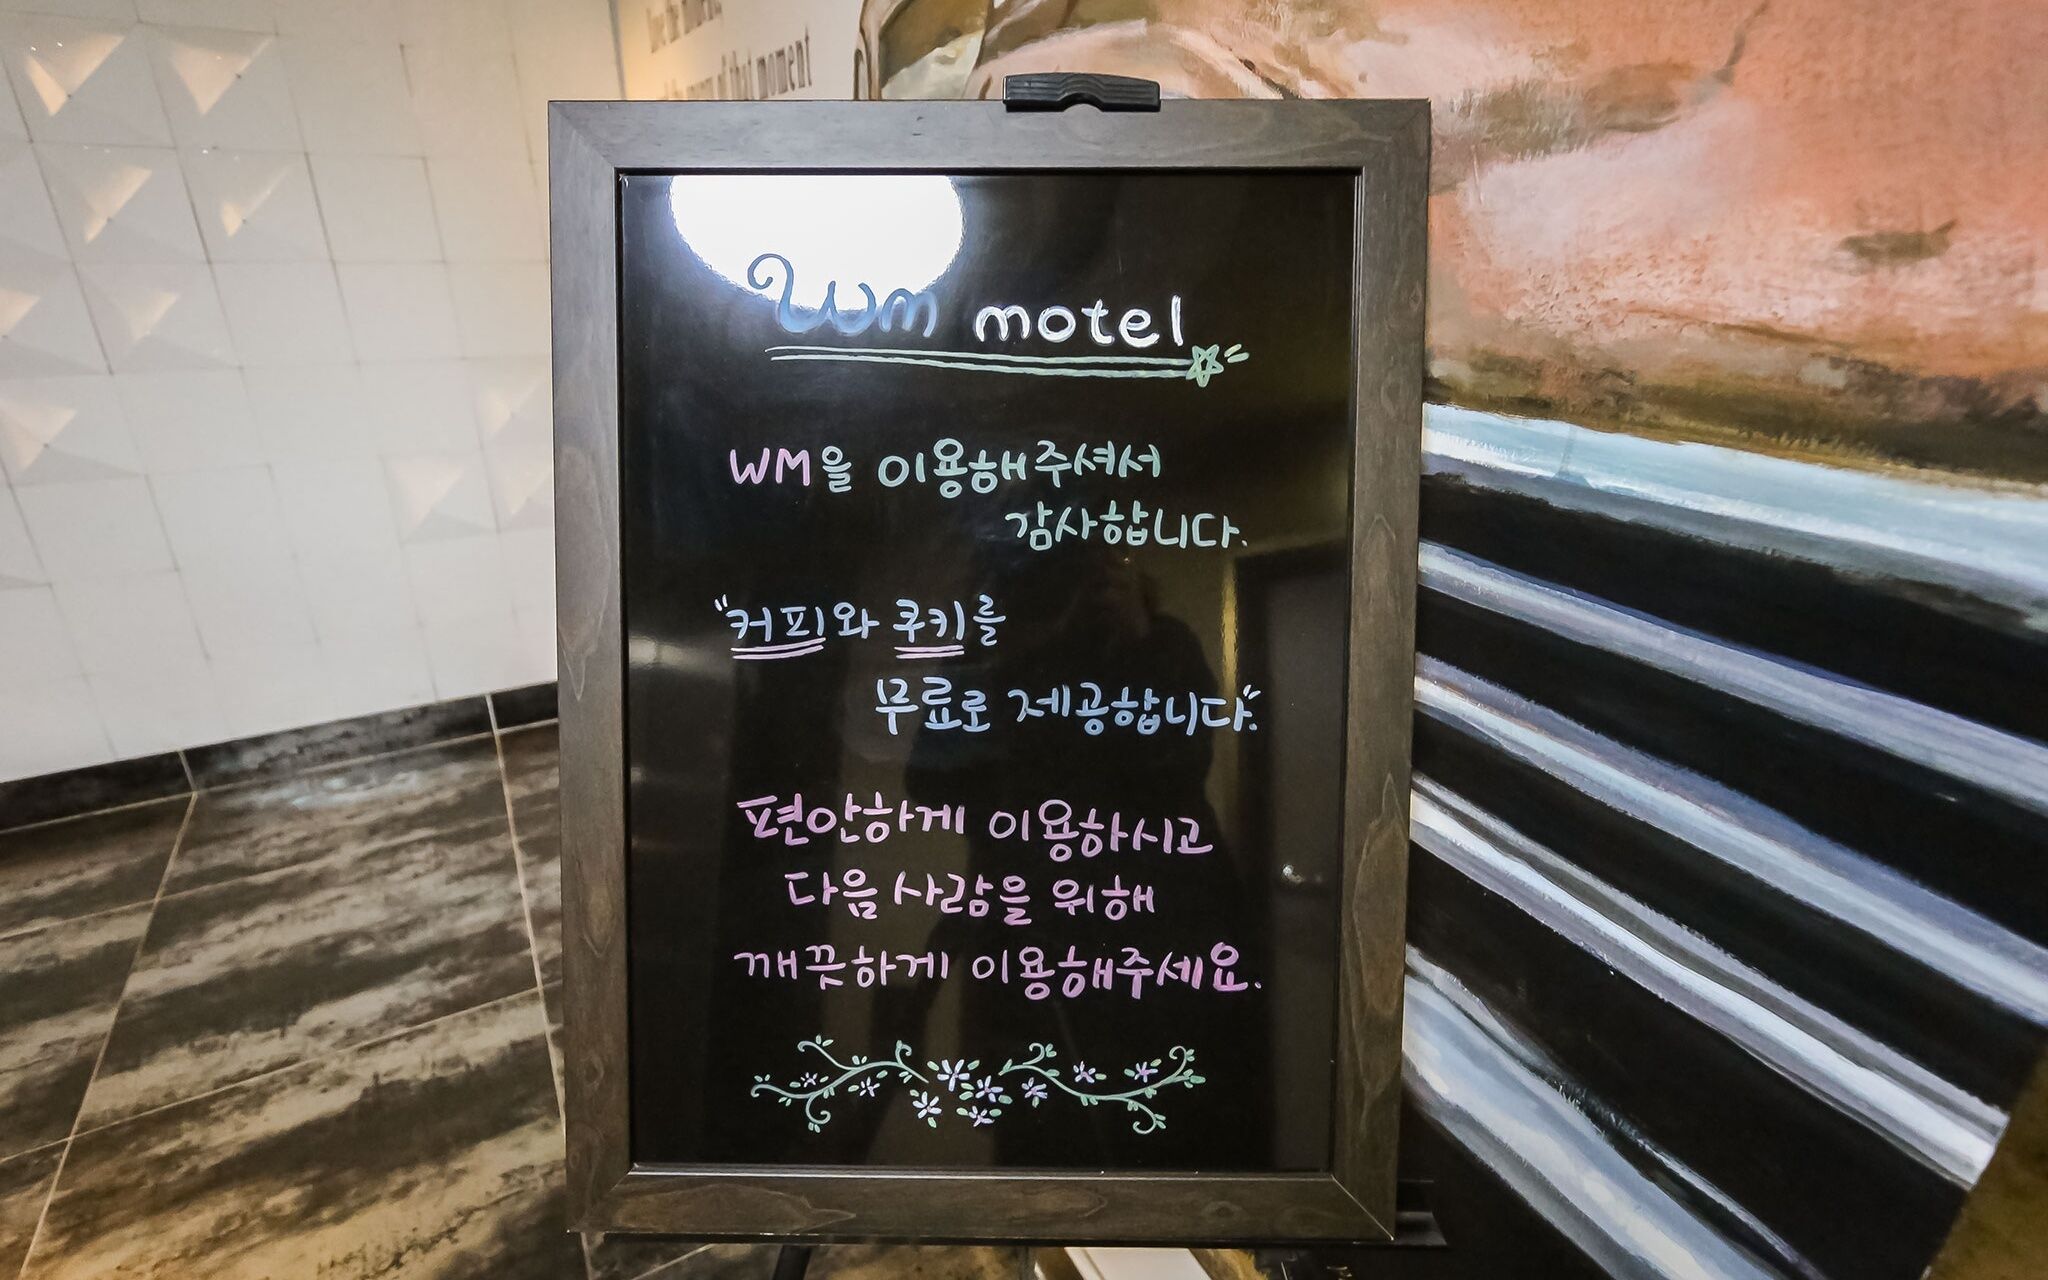 that moment
Wm motel
WM을 이용해주셔서
감사합니다.
"커피와 쿠키를
무료로 제공합니다."
편안하게 이용하시고
다음 사람을 위해
깨끗하게 이용해주세요.